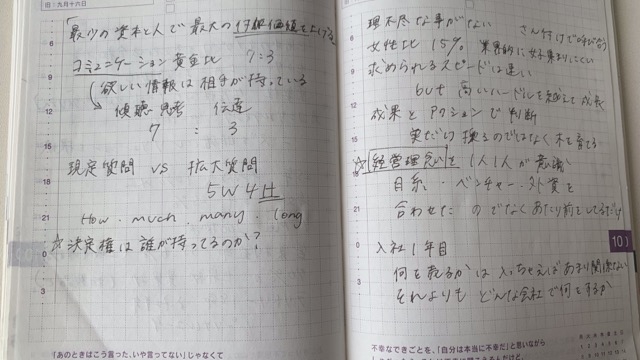 旧:九月十六日
「最少の資本と人で最大の付加価値を上げる
コミュニケーション黄金比 7:3
欲しい情報は相手が持っている
傾聴 思考 伝達
7 : 3
限定質問 vs 拡大質問
5W4H
How・much・many・long
☆決定権は誰が持ってるのか?
「あのときはこう言った、いや言ってない」じゃなくて
理不尽な事がない さん付けで呼び合う
女性比 15% 業界的に女子集まりにくい
求められるスピードは速い
but 高いハードルを越えて成長
成果とアクションで判断
実だけ換るのではなく木を育てる
☆経営理念を1人1人が意識
日系・ベンチャー・外資を
合わせたのでなくあたり前をしてるだけ
10)
入社1年目
何を売るかは入っちゃえばあまり関係ない
それよりもどんな会社で何をするか
不幸なできごとを、「自分は本当に不幸だ」と思いながら